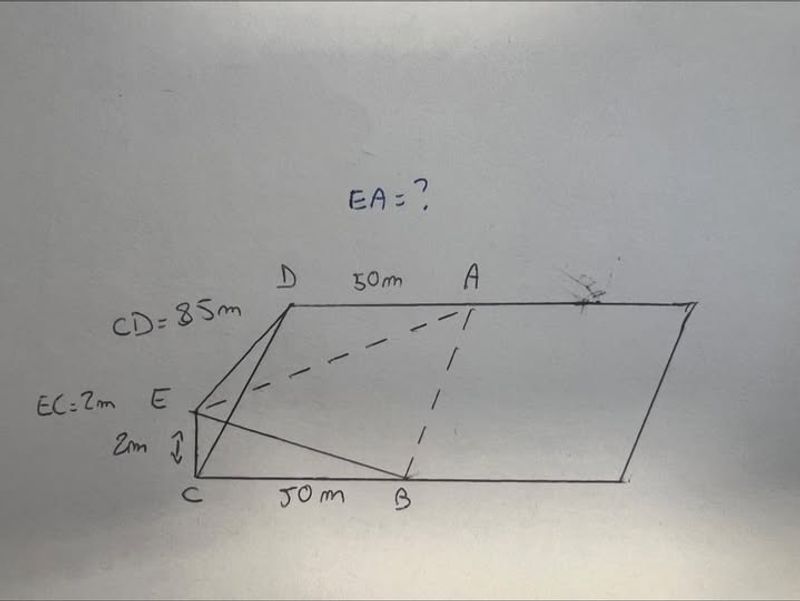 EA = ?
D 50m A
CD = 85m
EC = 2m E
2m
C 50m B